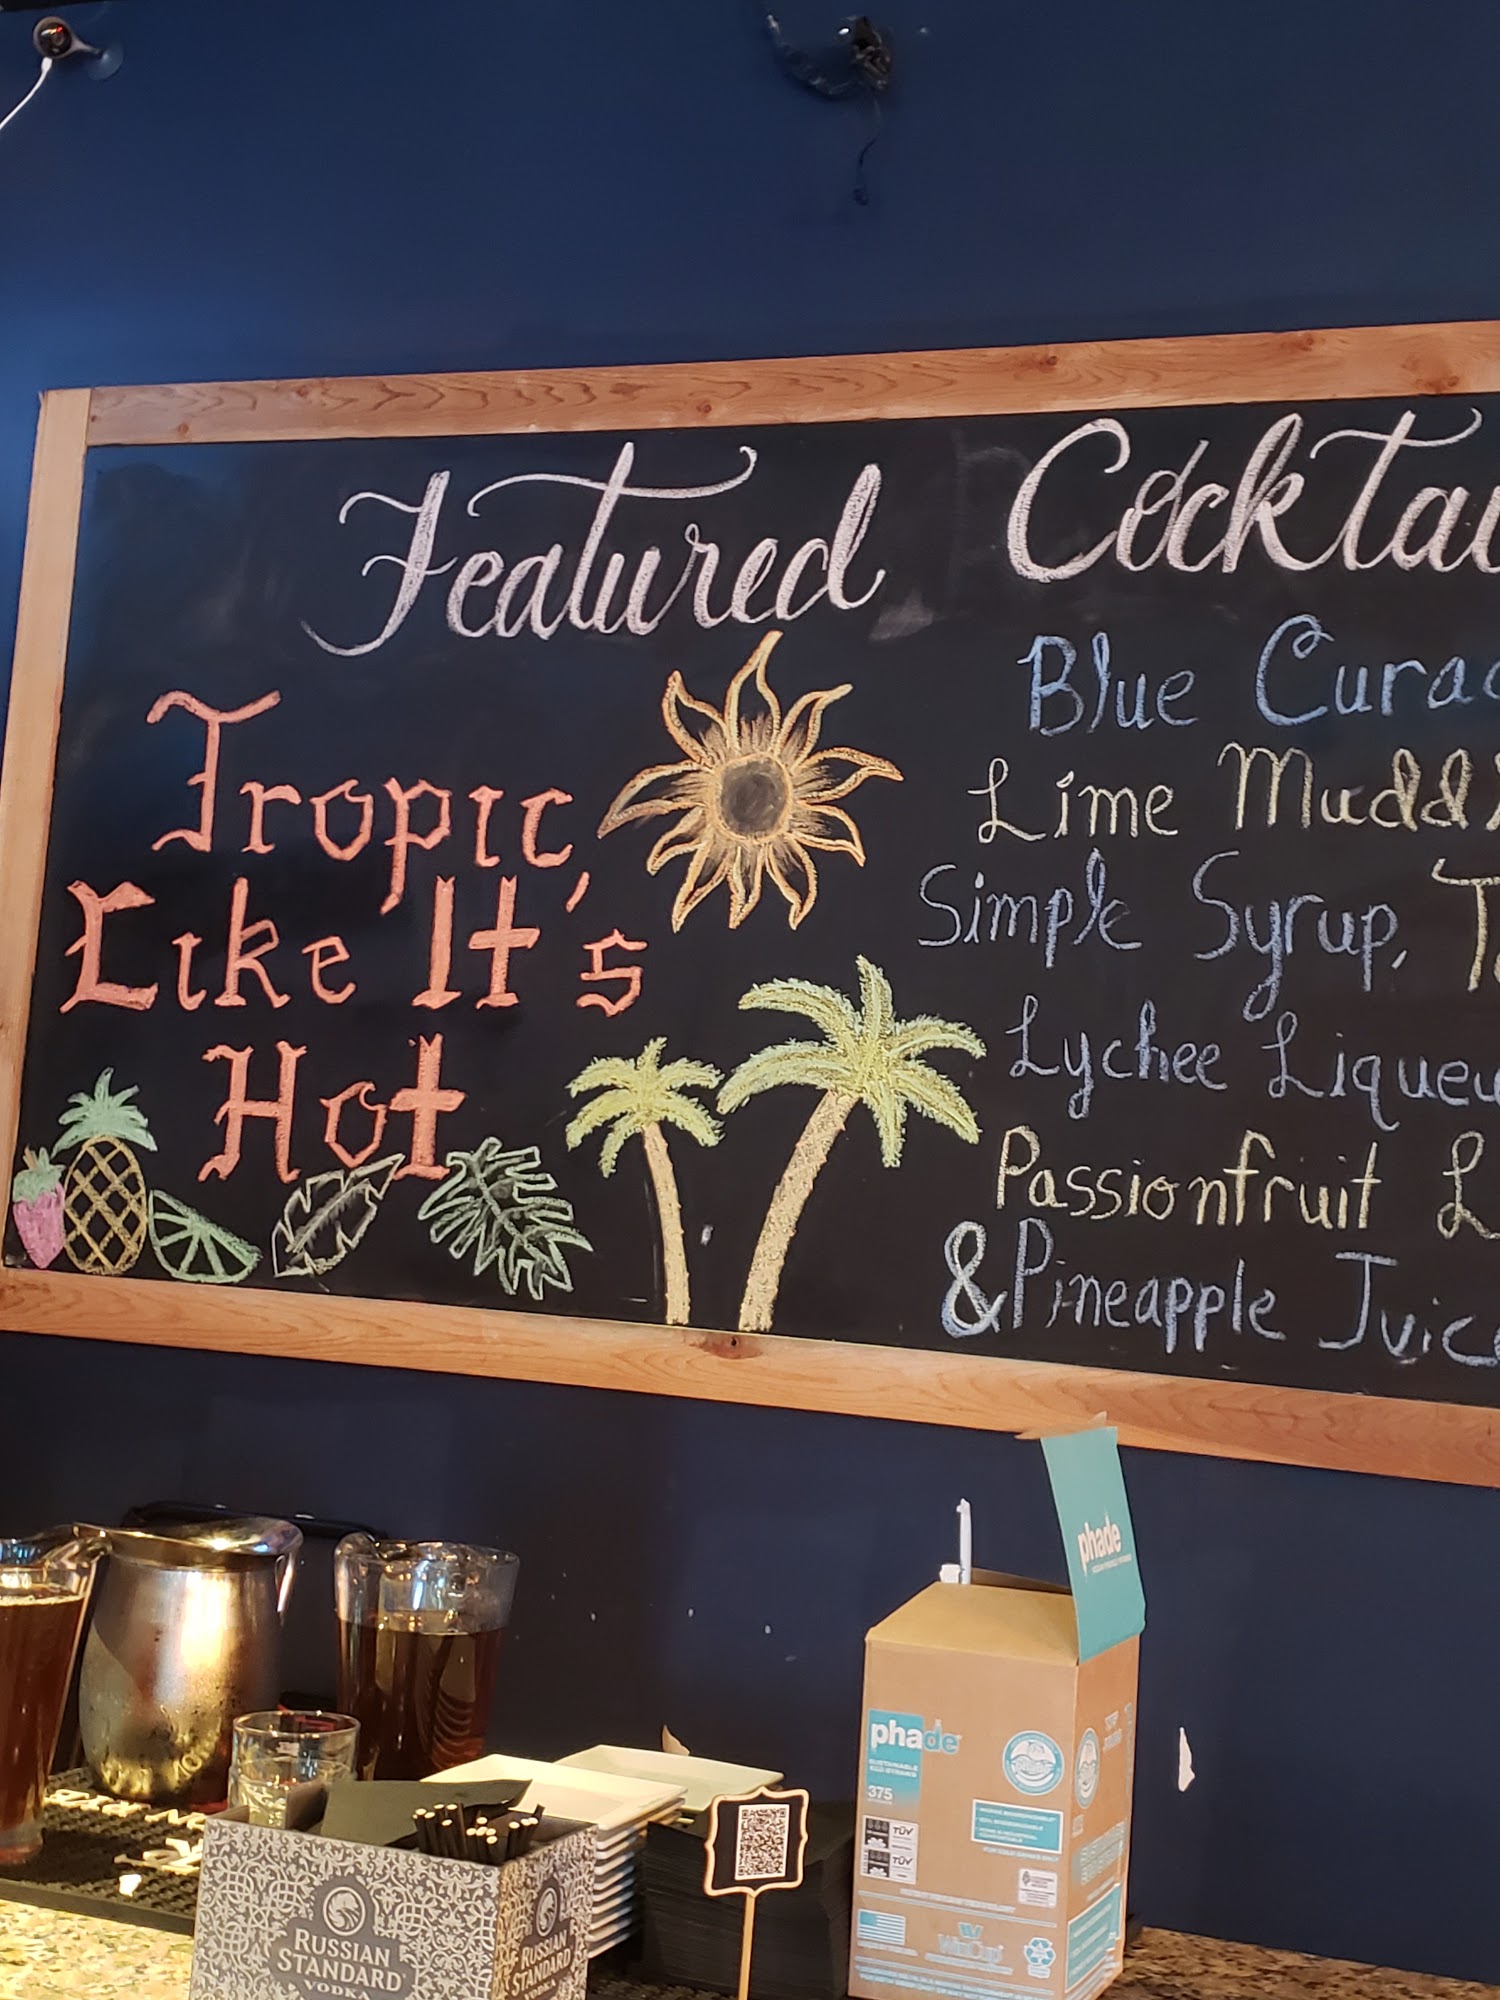 Featured Cocktai
Tropic,
Like It's
Hot
Blue Curac
Lime Muddl
Simple Syrup, T
Lychee Liqueu
Passionfruit L
& Pineapple Juice
phade
phade
375
TÜV
TÜV
WinCup
RUSSIAN
STANDARD
VODKA
RUSSIAN
STANDARD
VODKA